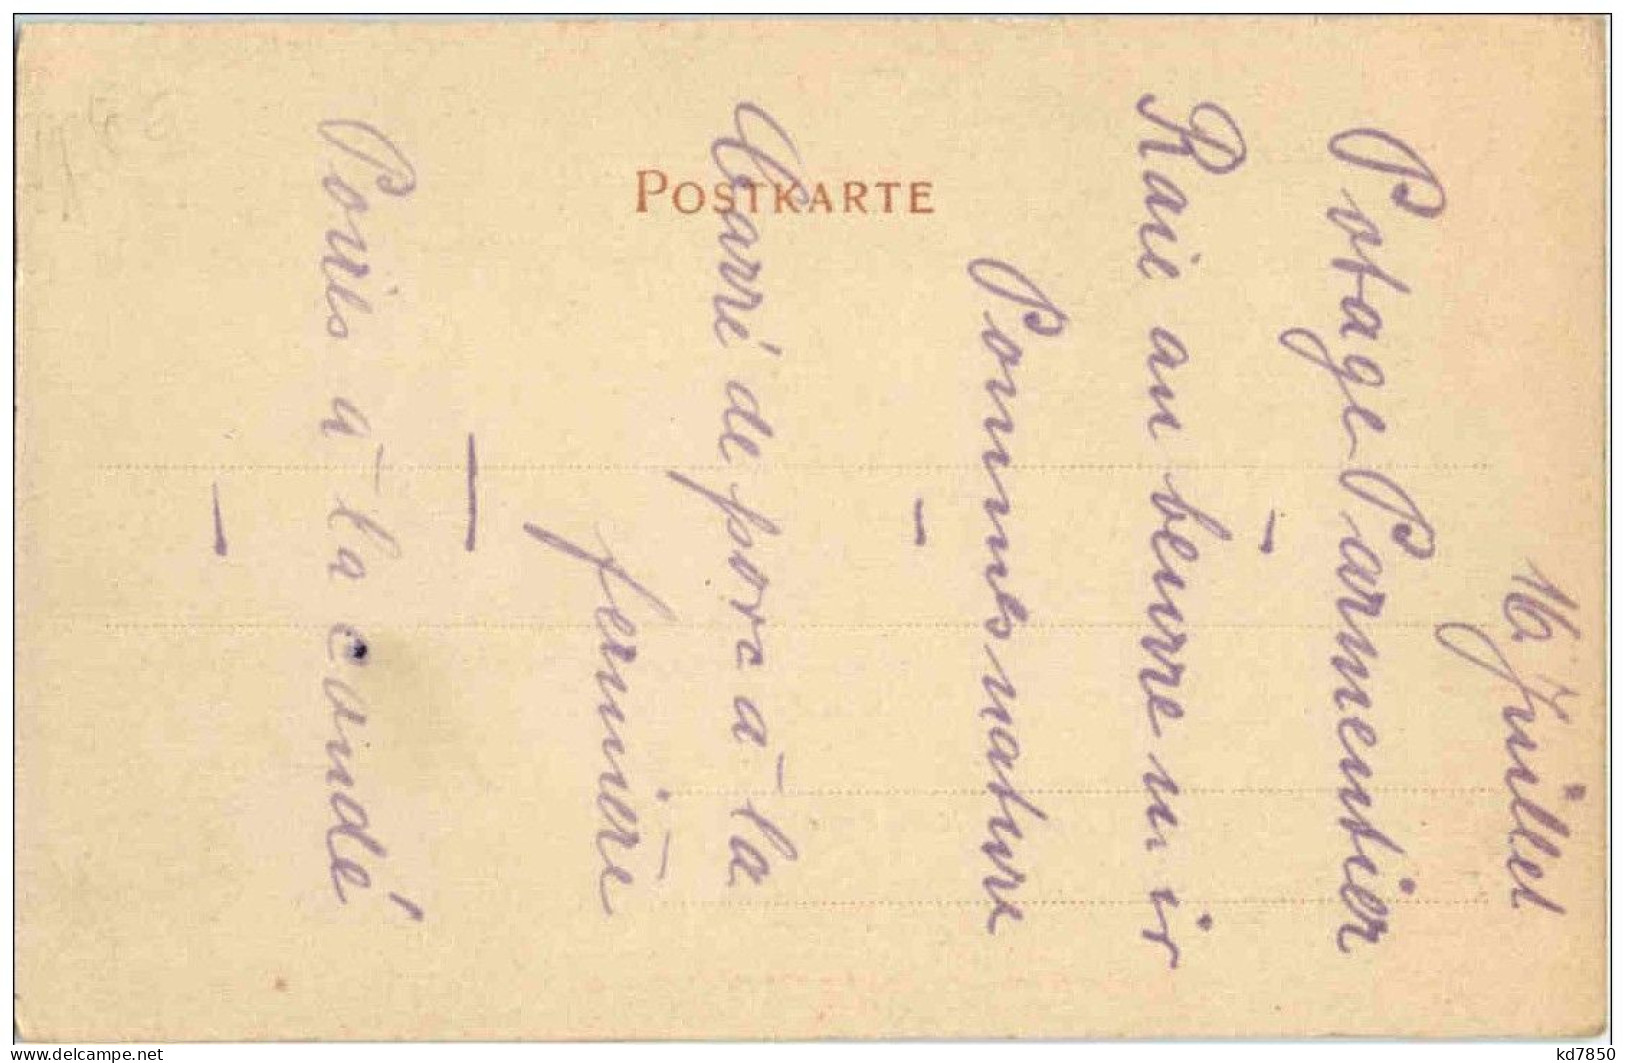 16 Juillet
Potage Parmentier
Raie au beurre noir
Pommes nature
Carré de porc à la
fermière
Poires à la condé
POSTKARTE
www.delcampe.net
kd7850